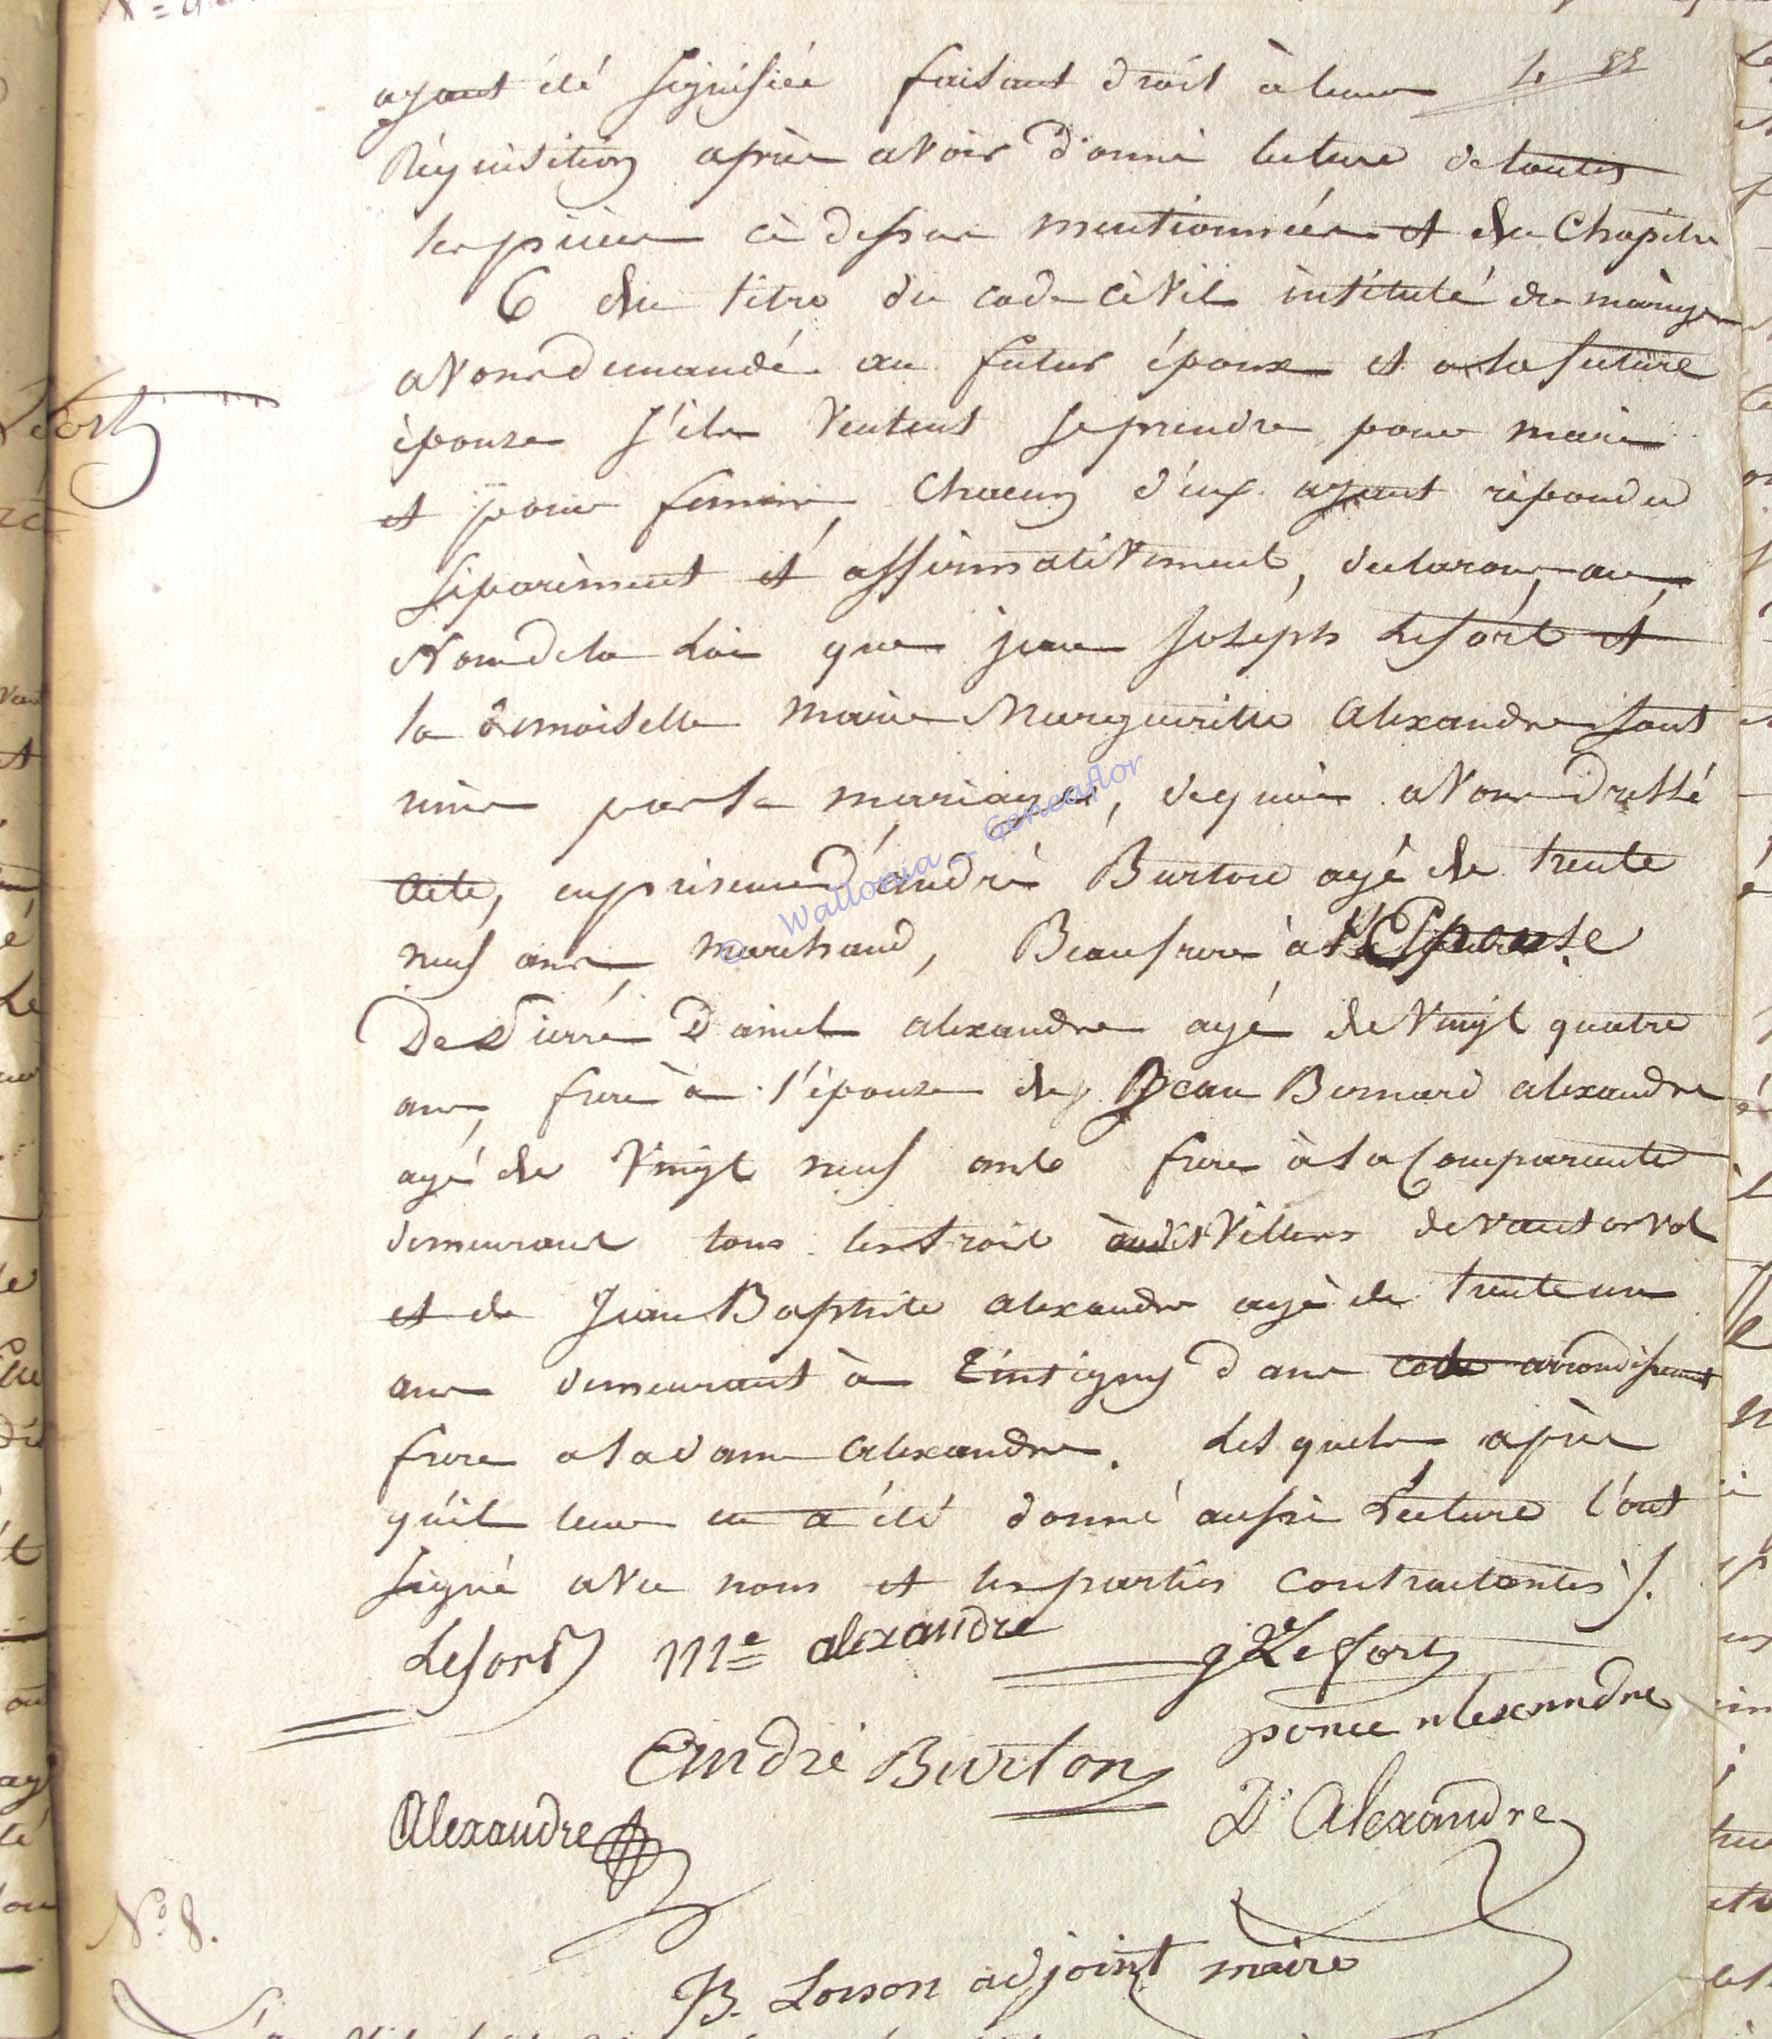 ayant été signifiée faisant droit à leur
Réquisition après avoir donné lecture de toutes
les pièces ci dessus mentionnées et du Chapitre
6 du titre du code civil intitulé du mariage
avons demandé au futur époux et a la future
épouse s'ils veulent se prendre pour mari
et pour femme, chacun d'eux ayant répondu
séparément et affirmativement, declarons, au
Nom de la Loi que jean Joseph Lefort et
la demoiselle marie Margueritte alexandre sont
unis par le mariage, de quoi avons dressé
acte, en présence d'andré Burton agé de trente
neuf ans, marchand, Beaufrere à l'Epouse
De Pierre Daniel alexandre agé de Vingt quatre
ans, frere à l'épouse de Jean Bernard alexandre
agé de Vingt neuf ans frere à la Comparante
demeurant tous les trois Villers devant orval
et de Jean Baptiste alexandre agé de trente un
ans demeurant à Tintigny dans cette arrondissement
frere a la dame alexandre. Lesquels, après
qu'il leur en a été donné aussi Lecture l'ont
signé avec nous et les parties contractantes /.
Lefort Me alexandre
g Lefort
ponce alexandre
André Burton
Alexandre
D. Alexandre
B. Loison adjoint maire
No. 8.
© Wallonia – Geneaflor